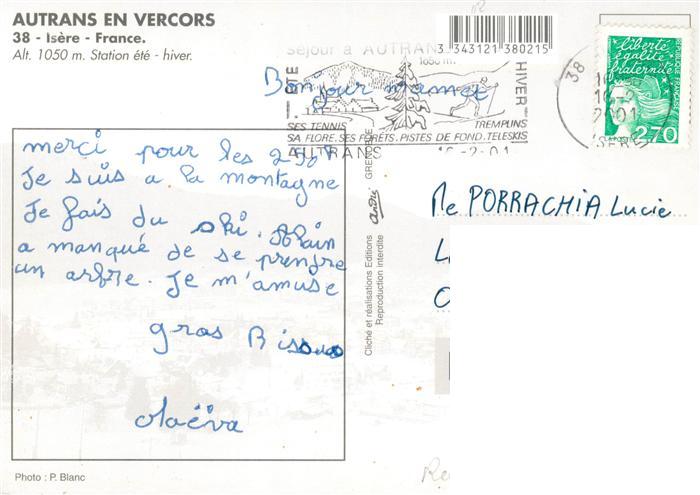 AUTRANS EN VERCORS
38 - Isère - France.
Alt. 1050 m. Station été - hiver.
3 343121 380215
Séjour à AUTRANS
1050 m.
ÉTÉ
HIVER
SES TENNIS TREMPLINS
SA FLORE. SES FORÊTS. PISTES DE FOND. TELESKIS
AUTRANS 16-2-01
38
ISERE
liberté
égalité
fraternité
RÉPUBLIQUE FRANÇAISE
2,70
Bonjour mamet
merci pour les
Je suis a la montagne
Je fais du ski.
a manqué de se prendre
un arbre. Je m'amuse
gros Bisous
Maëva
andré GRENOBLE
Cliché et réalisations Editions
Reproduction interdite
Me PORRACHIA Lucie
Photo : P. Blanc